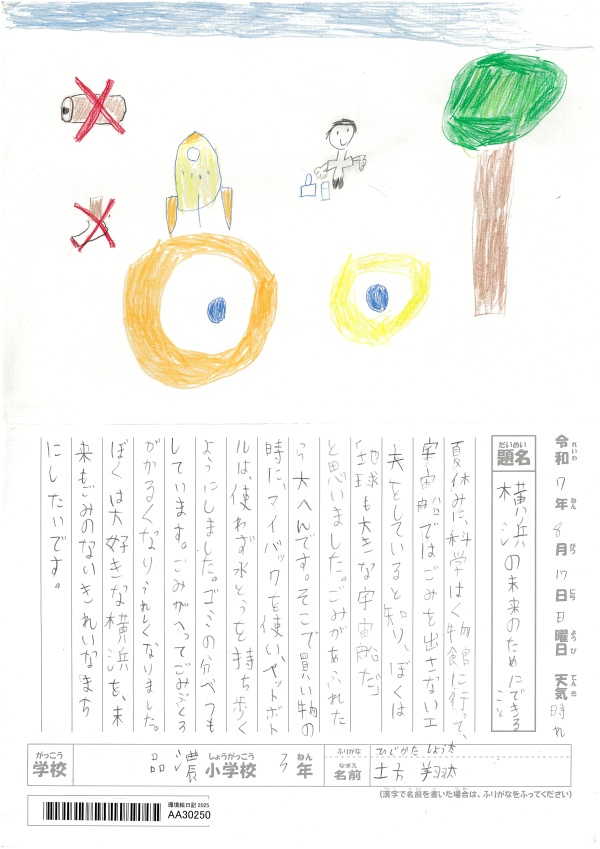 令和7年8月17日日曜日 天気 晴れ
題名 横浜の未来のためにできること
夏休みに、科学はく物館に行って、
宇宙船ではごみを出さない工
夫をしていると知り、ぼくは
「地球も大きな宇宙船だ」
と思いました。ごみがあふれた
ら大へんです。そこで買い物の
時に、マイバックを使い、ペットボト
ルは、使わず水とうを持ち歩く
ようにしました。ゴミの分べつも
しています。ごみがへってごみぶくろ
がかるくなりうれしくなりました。
ぼくは大好きな横浜を、未
来もごみのないきれいなまち
にしたいです。
学校 品濃小学校 3年
ふりがな ひじかた しょうた
名前 土方 翔汰
(漢字で名前を書いた場合は、ふりがなをふってください)
環境絵日記 2025
AA30250